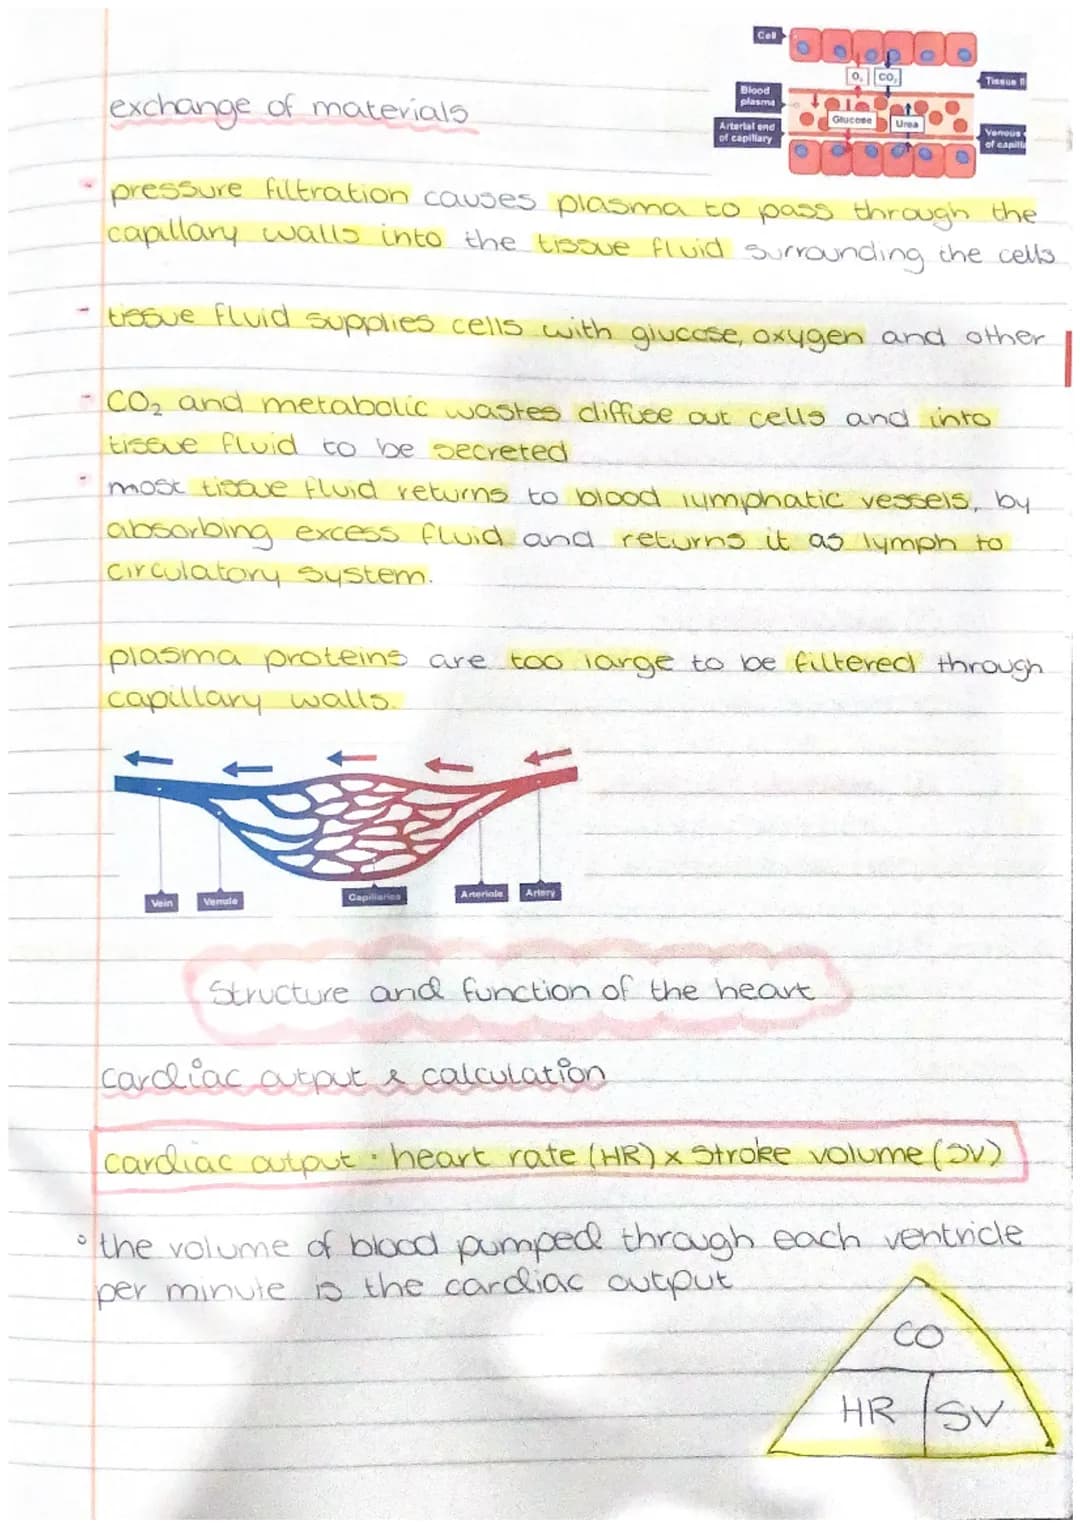 Cell
O₂ CO₂
Tissue fl
Blood plasma
Glucose
Urea
Arterial end of capillary
Venous
of capilla
exchange of materials
- pressure filtration causes plasma to pass through the
capillary walls into the tissue fluid surrounding the cells
- tissue fluid supplies cells with glucose, oxygen and other
- CO₂ and metabolic wastes diffuse out cells and into
tissue fluid to be secreted
- most tissue fluid returns to blood lymphatic vessels, by
absorbing excess fluid and returns it as lymph to
circulatory system.
plasma proteins are too large to be filtered through
capillary walls.
Vein Venule Capillaries Arteriole Artery
Structure and function of the heart
cardiac output & calculation
cardiac output = heart rate (HR) x stroke volume (SV)
° the volume of blood pumped through each ventricle
per minute is the cardiac output
CO
HR SV